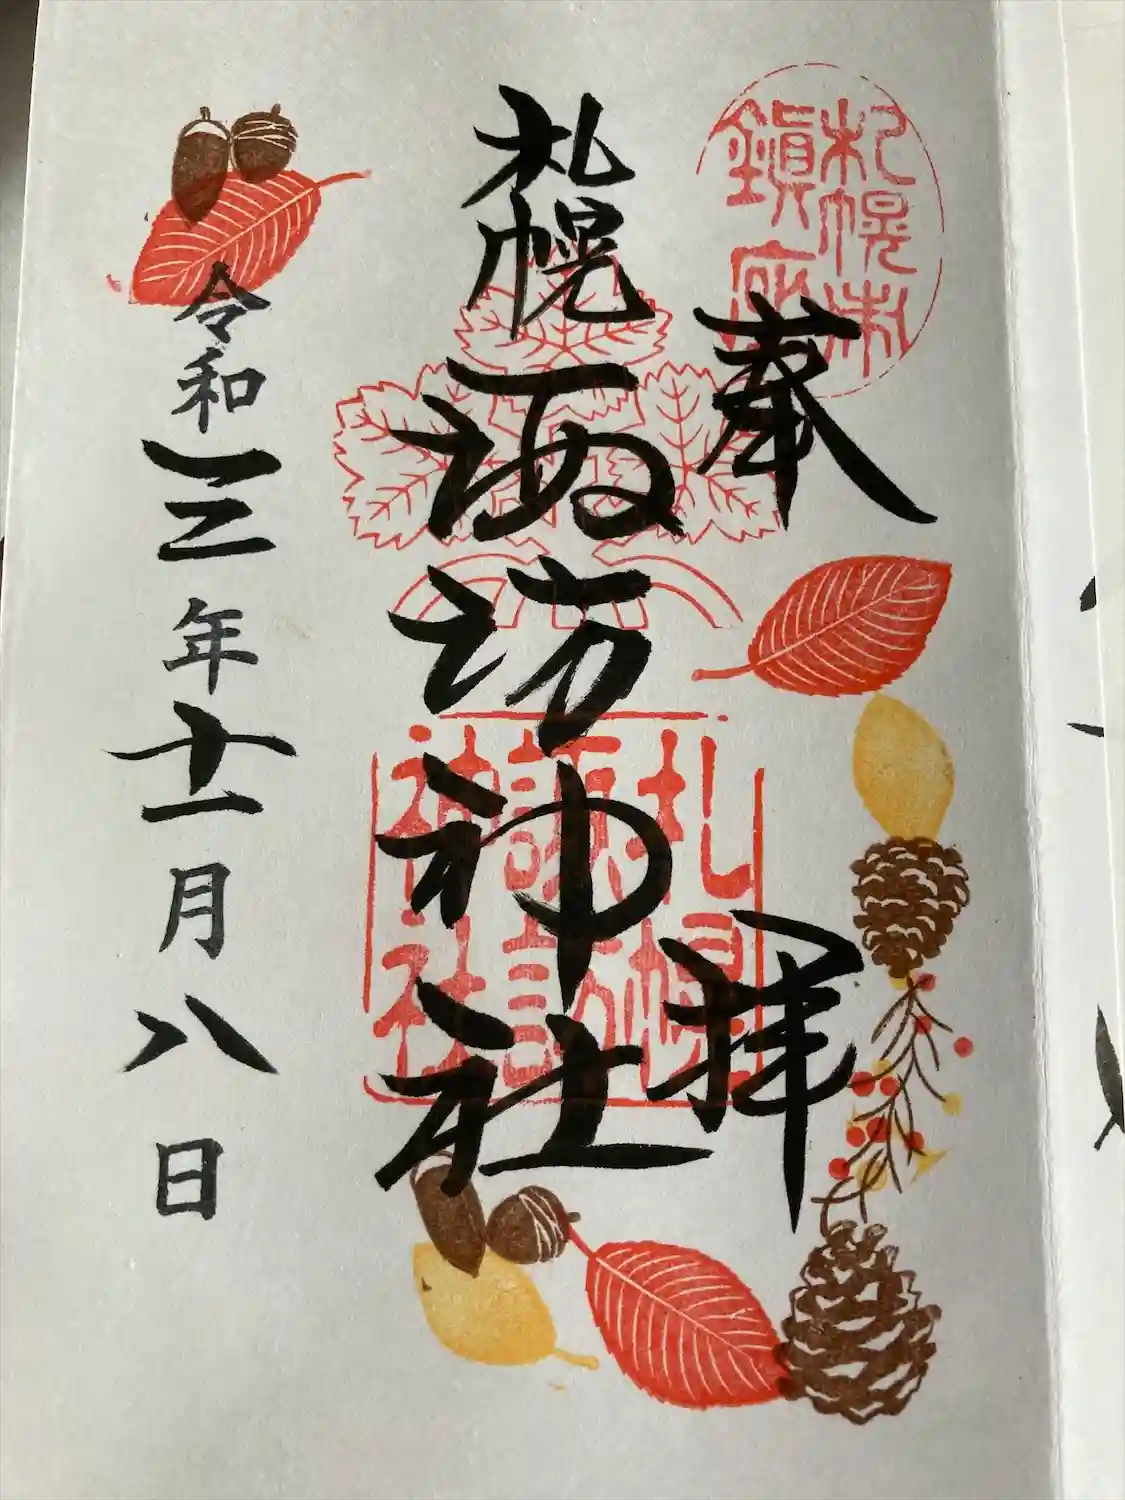 札幌市
鎮座
奉拝
札幌諏訪神社
札幌
諏訪
神社
令和三年十一月八日